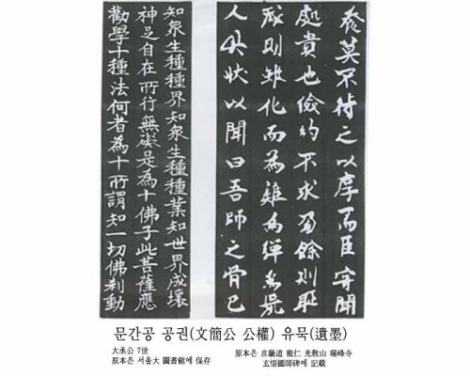 莫不待之以厚而臣
處貴也儉約不求餘則
則雖化而為為彈為
人以狀以聞曰吾師之骨已
知衆生種種界知衆生種種業知世界成壞
神足自在所行無礙是為十佛子此菩薩應
勸學十種法何者為十所謂知一切佛刹動
문간공 공권(文簡公 公權) 유묵(遺墨)
大丞公 7世
原本은 서울大 圖書館에 保存
原本은 京畿道 龍仁 光敎山 瑞峰寺
玄悟國師碑에 記載